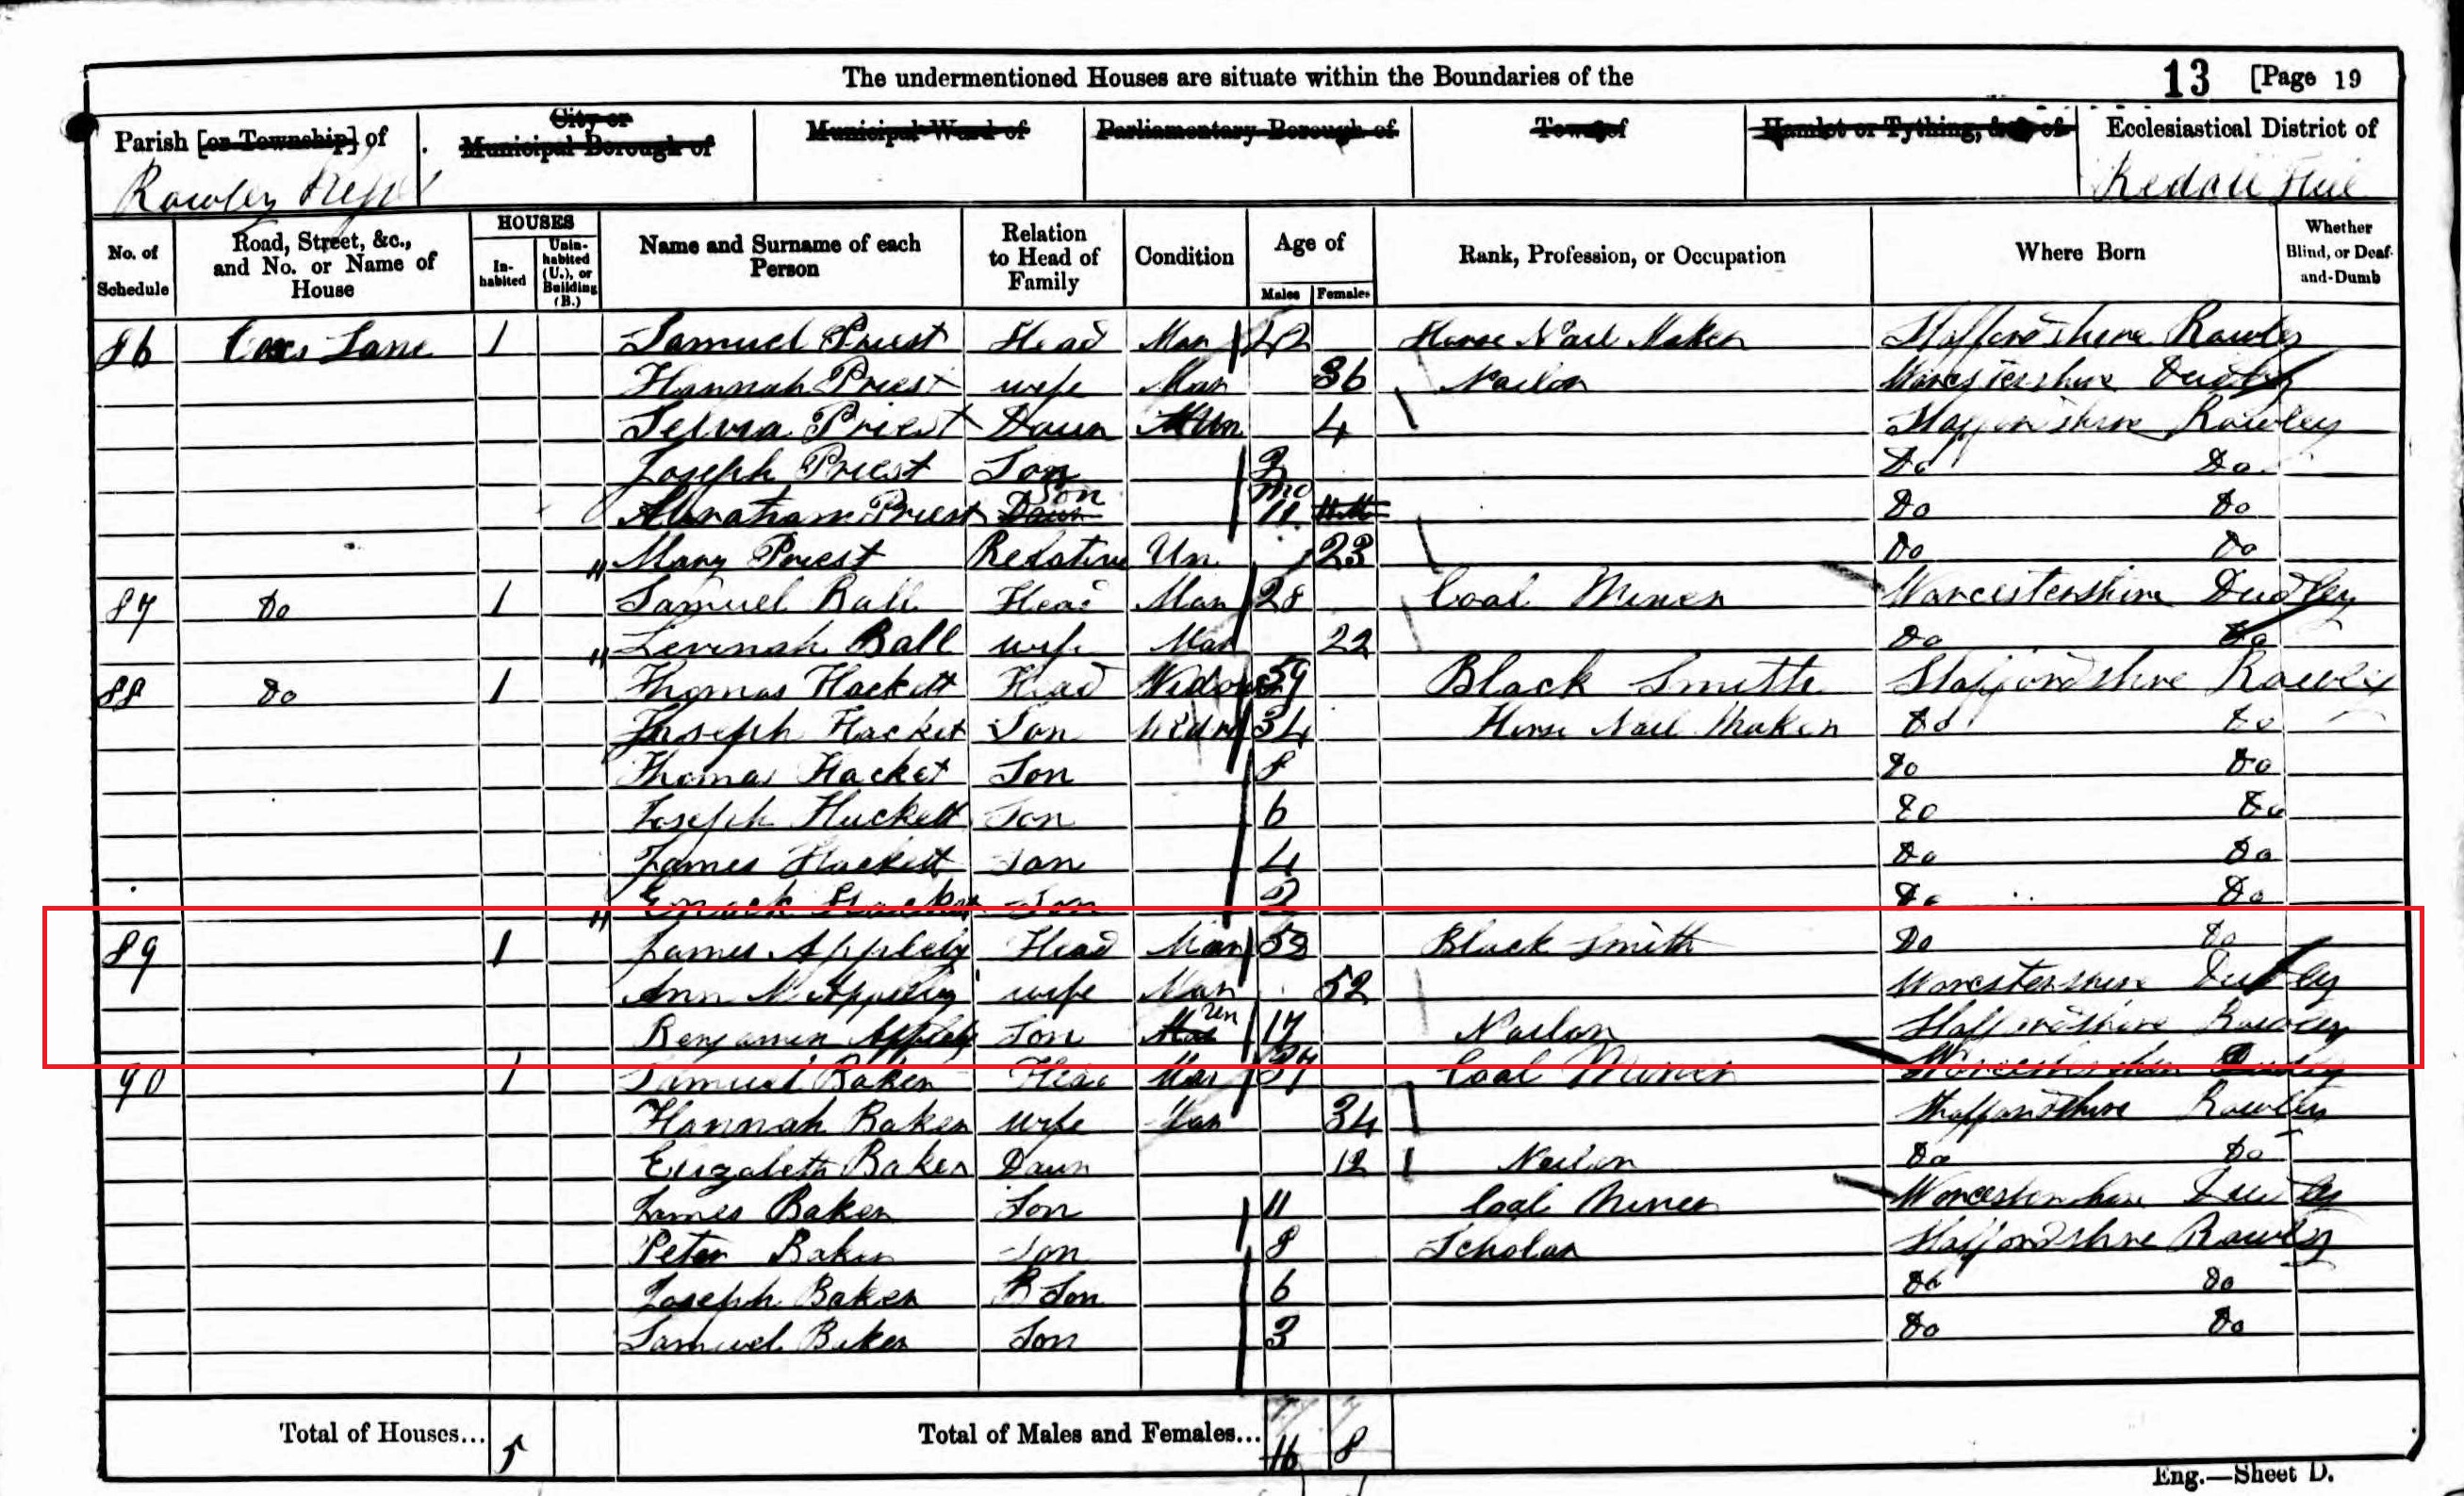 The undermentioned Houses are situate within the Boundaries of the 13 [Page 19
Parish [or Township] of City or Municipal Borough of Municipal Ward of Parliamentary Borough of Town of Hamlet or Tything, &c., of Ecclesiastical District of
Rowley Regis Reddall Hill
No. of Schedule Road, Street, &c., and No. or Name of House HOUSES Inhabited Uninhabited (U.), or Building (B.) Name and Surname of each Person Relation to Head of Family Condition Age of Males Females Rank, Profession, or Occupation Where Born Whether Blind, or Deaf-and-Dumb
86 Lane 1 Samuel Priest Head Mar 42 Horse Nail Maker Staffordshire Rowley
Hannah Priest wife Mar 36 Nailor Worcestershire Dudley
Priest Daur Un 4 Staffordshire Rowley
Joseph Priest Son Do Do
Abraham Priest Daur Son mo 11 Do Do
Mary Priest Relative Un 23 Do Do
87 Do 1 Samuel Ball Head Mar 28 Coal Miner Worcestershire Dudley
Levinah Ball wife Mar 22 Do Do
88 Do 1 Thomas Hackett Head Widowr 59 Black Smith Staffordshire Rowley
Joseph Hacket Son Widr 34 Horse Nail Maker Do Do
Thomas Hacket Son 8 Do Do
Joseph Hackett Son 6 Do Do
James Hackett Son 4 Do Do
Enoch Hacket Son 2 Do Do
89 1 James Appleby Head Mar 53 Black Smith Do Do
Ann M Appleby wife Mar 52 Worcestershire Dudley
Benjamin Appleby Son Mar Un 17 Nailor Staffordshire Rowley
90 1 Samuel Baker Head Mar 37 Coal Miner Worcestershire Dudley
Hannah Baker wife Mar 34 Staffordshire Rowley
Elizabeth Baker Daur 12 Nailor Do Do
James Baker Son 11 Coal Miner Worcestershire Dudley
Peter Baker Son 8 Scholar Staffordshire Rowley
Joseph Baker Son 6 Do Do
Samuel Baker Son 3 Do Do
Total of Houses... 5 Total of Males and Females... 16 8
Eng.—Sheet D.